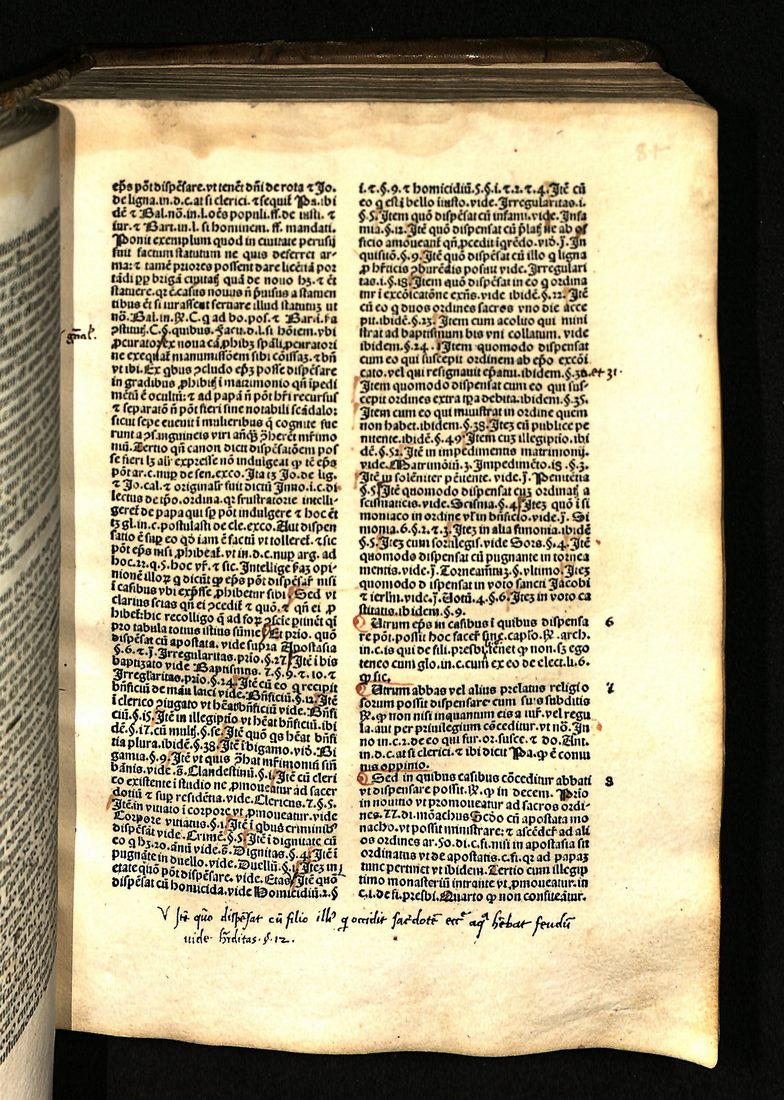 ep̄s põt dispēsare. vt tenēt dñi de rota ⁊ Jo.
de ligna. in. d. c. at si clerici. ⁊ sequit̃ Pa. ibi
dē ⁊ Bal. nō. in. l. oēs populi. ff. de iusti. ⁊
iur. ⁊ Bart. in. l. si hominem. ff. mandati.
Ponit exemplum quod in ciuitate perusij
fuit factum statutum ne quis deferret ar-
ma: ⁊ tamē priores possent dare licētiā por
tādi ꝓp brigā ciuitatꝭ quā de nouo hꝫ. ⁊ ē
statuere. qꝛ ē casus nouus ñ p̄uisus a statuen
tibus ēt si iurassent seruare illud statutuꝫ vt
nō. Bal. in. R̄. C. q ad bo. pos. ⁊ Bar. i. ra
C. §. quibus. l. si hōiem. vbi
ꝓcurator ex noua cā. ꝓhibꝫ spāli ꝓcuratori
ne exequat̃ manumissiōem sibi cōissaꝫ. ⁊ bñ
vt ibi. Ex qbus ꝯcludo ep̄ꝫ posse dispēsare
in gradibus ꝓhibitꝭ i matrimonio qñ ipedi
mētū ē occultū: ⁊ ad papā ñ põt hr̄i recursus
⁊ separatō ñ põt fieri sine notabili scādalo:
sicut sepe euenit i mulieribus q̄ cognite fue
runt a ꝯsanguineis viri anq̄ꝫ ꝯherēt mr̃imo
niū. Tertio qñ canon dicit dispēsatōem pos
se fieri lꝫ alr̄ expresse nō indulgeat ꝙ tc̄ ep̄s
põt ar. c. nup̄ de sen. exco. Ita iꝫ Jo. de lig.
⁊ Jo. cal. ⁊ originalr̄ fuit dictū Inno. i. c. di
lectus de tꝑo. ordina. qꝛ frustratorie intelli-
geret̃ de papa qui sꝑ põt indulgere ⁊ hoc ēt
tꝫ gl. in. c. postulasti de cle. exco. Aut dispen
satio ē suꝑ eo qd̄ iam ē factū vt tolleret̃. ⁊ sic
põt ep̄s nisi ꝓhibeat̃. vt in. d. c. nup̄ arg. ad
hoc. 22. q. 5. hoc vr̄. ⁊ sic. Intellige p̄aꝫ opi
nionē illoꝝ q̄ dicūt ꝙ ep̄s põt dispēsar̄ nisi
i casibus vbi exp̄sse ꝓhibetur sibi. Sed vt
clarius scias qñ ei ꝯcedit̃ ⁊ quō. ⁊ qñ ei ꝓ
hibet̃: hic recolligo q̄ ad for. ꝯscie p̄tinēt q̄i
pro tabula totius istius sūme. Et prio. quō
dispēsat cū apostata. vide supra Apostasia
§. 6. ⁊. j. Irregularitas. prio. §. 27. Itē i bis
baptizato vide Baptismus. 7. §. 9. ⁊. 10. ⁊
Irreglaritas. prio. §. 24. Itē cū eo q̄ recipit
bñficiū de māu laici vide. Bñficiū. §. 12. Itē
i clerico ꝯiugato vt hēat bñficiū vide. Bñfi
ciū. §. 15. Itē in illegiptio vt hēat bñficiū. ibi
dē. §. 17. cū multꝭ §. se. Itē quō q̄s hēat bñfi
tia plura. ibidē. §. 38. Itē i bigamo. vid. Bi
gamia. §. 9. Itē vt quis ꝯhat mr̃imoniū sun
bānis. vide. s. Clandestinū. §. 1. Itē cū cleri
co existente i studio ne ꝓmoueatur ad sacer
dotiū ⁊ sup̄ residētia. vide. Clericus. 7. §. 5.
Itē in vitiato i corpore vt ꝓmoueatur. vide
Corpore vitiatus. §. 1. Itē i qbus criminibꝰ
dispēsat vide. Crimē. §. 5. Itē i dignitate cū
eo q̄ hꝫ. 20. annū vide. s. Dignitas. §. 4. Itē i
pugnāte in duello. vide. Duellū. §. 1. Iteꝫ in
etate quō põt dispēsare. vide. Etas. Itē quō
dispēsat cū homicida. vide Homicidiū. 2. §
gn̄al'.
i. ⁊. §. 9. ⁊ homicidiū. 5. §. i. ⁊. 2. ⁊. 4. Itē cū
eo q̄ est i bello iusto. vide. Irregularitas. i.
§. 5. Item quō dispēsat cū infami. vide. Infa
mia. §. 12. Itē quō dispensat cum p̄latꝭ ne ab of
ficio amoueant̃ qñ. ꝓcedit̃ iq̄rēdo. vid. j. In
quisitiō. §. 9. Itē quō dispēsat̃ cū illo q̄ ligna
ꝓ hr̄eticis ꝯburēdis posuit vide. Irregulari
tas. i. §. 18. Item quō dispēsat̃ in eo q̄ ordina
tur i excōicatōne exñs. vide ibidē. §. 22. Itē
cū eo q̄ duos ordines sacros vno die acce
pit. ibidē. §. 23. Item cum acolito qui mini
strat ad baptismum bis vni collatum. vide
ibidem. §. 24. Item quomodo dispensat
cum eo qui suscepit ordinem ab ep̄o excōi
cato. vel qui resignauit ep̄atui. ibidem. §. 30. et 31.
Item quomodo dispensat cum eo qui sus-
cepit ordines extra tꝑa debita. ibidem. §. 35.
Item cum eo qui ministrat in ordine quem
non habet. ibidem. §. 38. Iteꝫ cū publice pe
nitente. ibidē. §. 49. Item cuꝫ illegiptio. ibi
dē. §. 52. Itē in impedimentis matrimonij.
vide. Matrimōiū. 3. Impedimēto. 18. §. 3.
Itē in solēniter pēitente. vide. j. Penitētia
§. 5. Itē quomodo dispensat cuꝫ ordinatꝭ a
scismaticis. vide. Scisma. §. 4. Iteꝫ quō i si
moniaco in ordine vl̄ in bñficio. vide. j. Si
monia. 6. §. 2. ⁊. 3. Iteꝫ in alia simonia. ibidē
§. 5. Iteꝫ cum sorilegis. vide Sors. §. 4. Itē
quomodo dispensat cū pugnante in tornea
mentis. vide. j. Torneamētuꝫ. §. vltimo. Iteꝫ
quomodo dispensat in voto sancti Jacobi
⁊ ierl̄m. vide. j. Uotū. 4. §. 6. Iteꝫ in voto ca
stitatis. ibidem. §. 9.
Utrum ep̄s in casibus i quibus dispensa 6
re põt. possit hoc facer̄ sine. capl̄o. R̄. arch.
in. c. is qui de fili. presbi. tenēt ꝙ non. sꝫ ego
teneo cum glo. in. c. cum ex eo de elect. li. 6.
ꝙ sic.
Utrum abbas vel alius prelatus religio 7
sorum possit dispensare cum suis subditis
R̄. ꝙ non nisi inquantum eis a iur̄. vel regu
la. aut per priuilegium cōceditur. vt nō. In
no in. c. 2. de eo qui fur. or. susce. ⁊ do. Ant.
in. d. c. at si clerici. ⁊ ibi dicit Pa. ꝙ ē comu
nis oppinio.
Sed in quibus casibus cōceditur abbati 8
vt dispensare possit. R̄. ꝙ in decem. Prio
in nouitio vt promoueatur ad sacros ordi-
nes. 77. di. mōachus Scōo cū apostata mo
nacho. vt possit ministrare: ⁊ ascēder̄ ad ali
os ordines ar. 50. di. c. fi. nisi in apostasia sit
ordinatus vt de apostatis. c. fi. qꝛ ad papaꝫ
tunc pertinet vt ibidem. Tertio cum illegip
timo monasteriū intrante vt. ꝓmoueatur. in
c. i. de fi. presbi. Quarto ꝙ non consueatur.
V Itē quo dispēsat cū filio illiꝰ q occidit sacerdotē aq̄ hēbat feudū
uide hr̄ditas. §. 12.